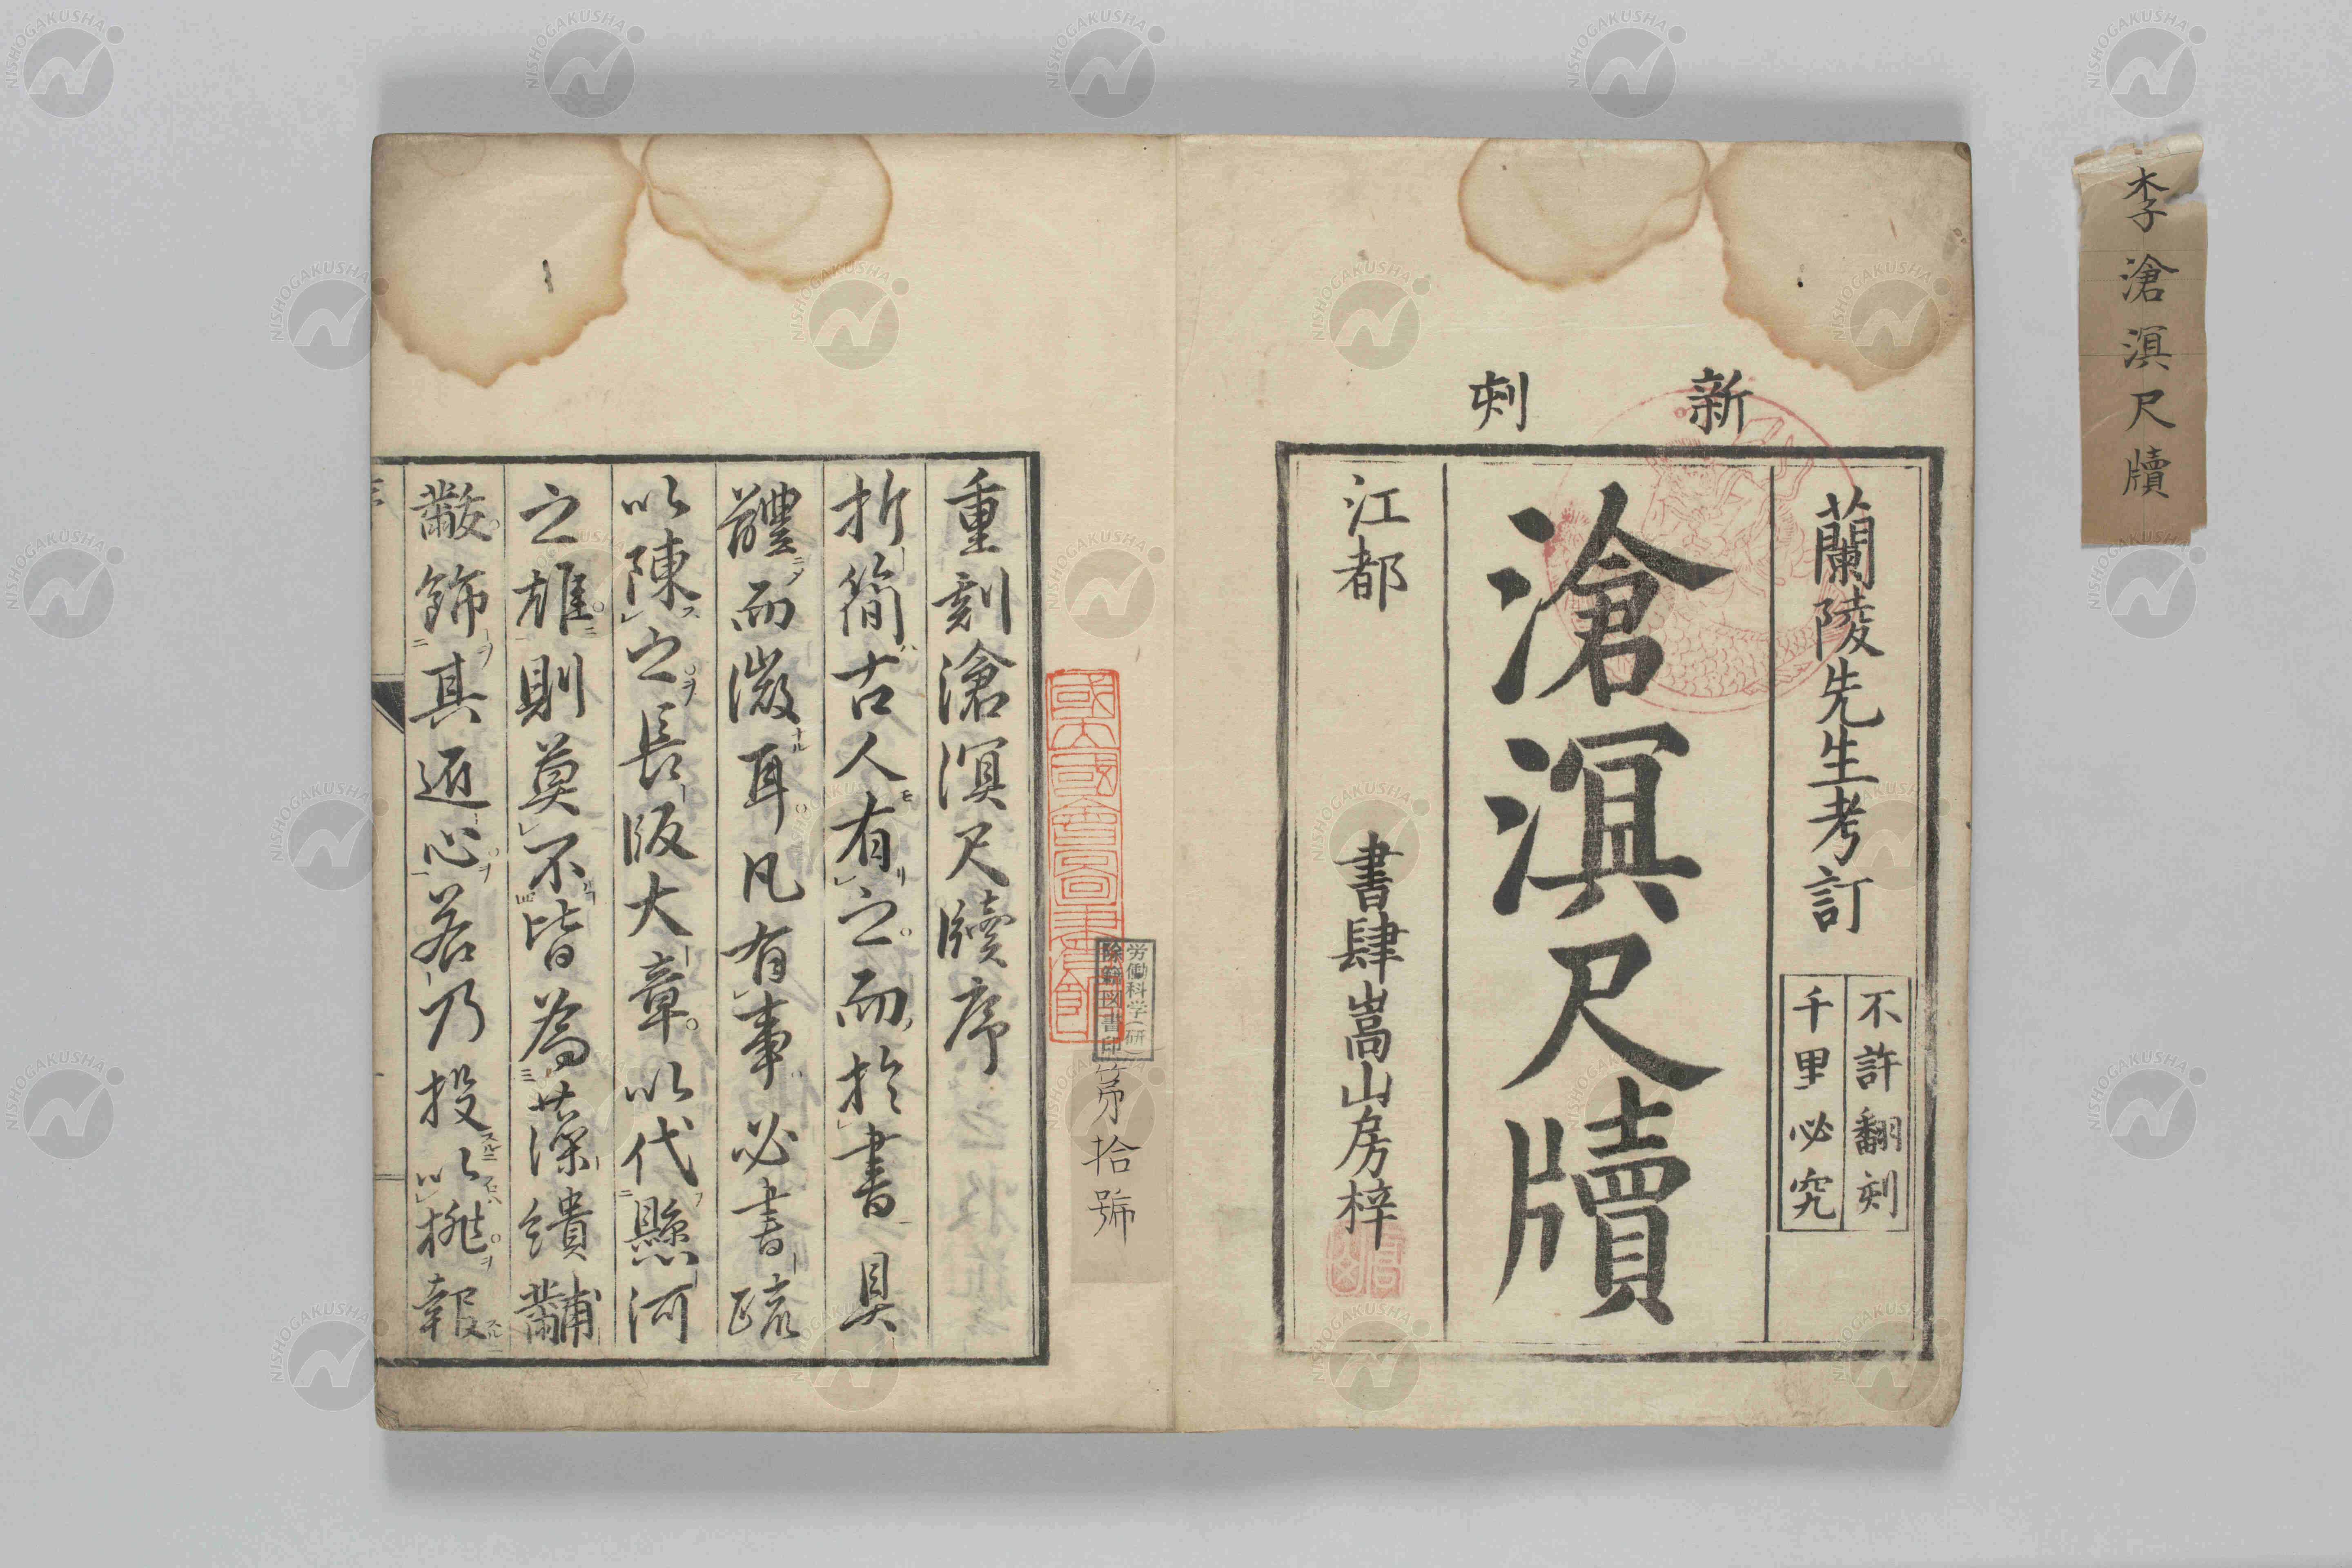 李滄溟尺牘
新刻
蘭陵先生考訂
不許翻刻
千里必究
滄溟尺牘
江都 書肆嵩山房梓
國立國會圖書館
労働科学研
除籍図書印
第拾號
重刻滄溟尺牘序
折簡古人有之而於書具
體而微耳凡有事必書疏
以陳之長版大章以代懸河
之雄則莫不皆為藻繢黼
黻飾其遁心若乃投以桃報
NISHOGAKUSHA